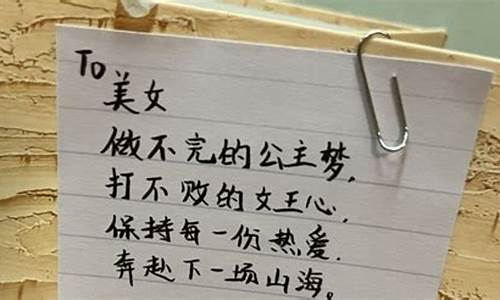 To
美女
做不完的公主梦,
打不败的女王心,
保持每一份热爱.
奔赴下一场山海。